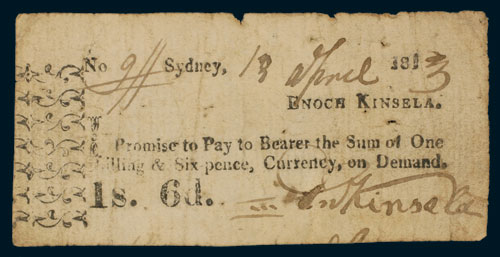 No Sydney, 13 April 1813
ENOCH KINSELA.
I Promise to Pay to Bearer the Sum of One
Shilling & Six-pence, Currency, on Demand.
1s. 6d. Kinsela